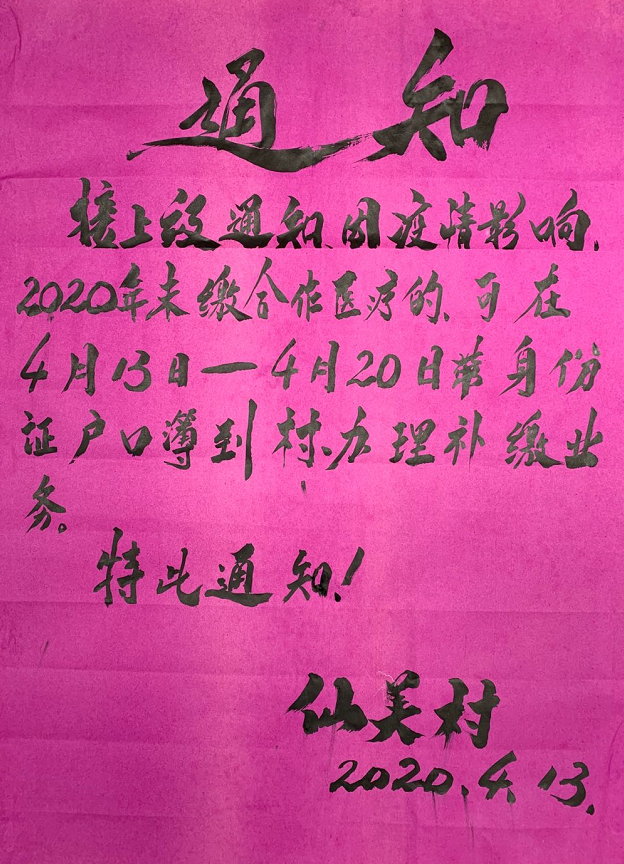 通知
接上级通知、因疫情影响、
2020年未缴合作医疗的、可在
4月13日一4月20日带身份
证户口簿到村、办理补缴业
务。
特此通知！
仙美村
2020.4.13.